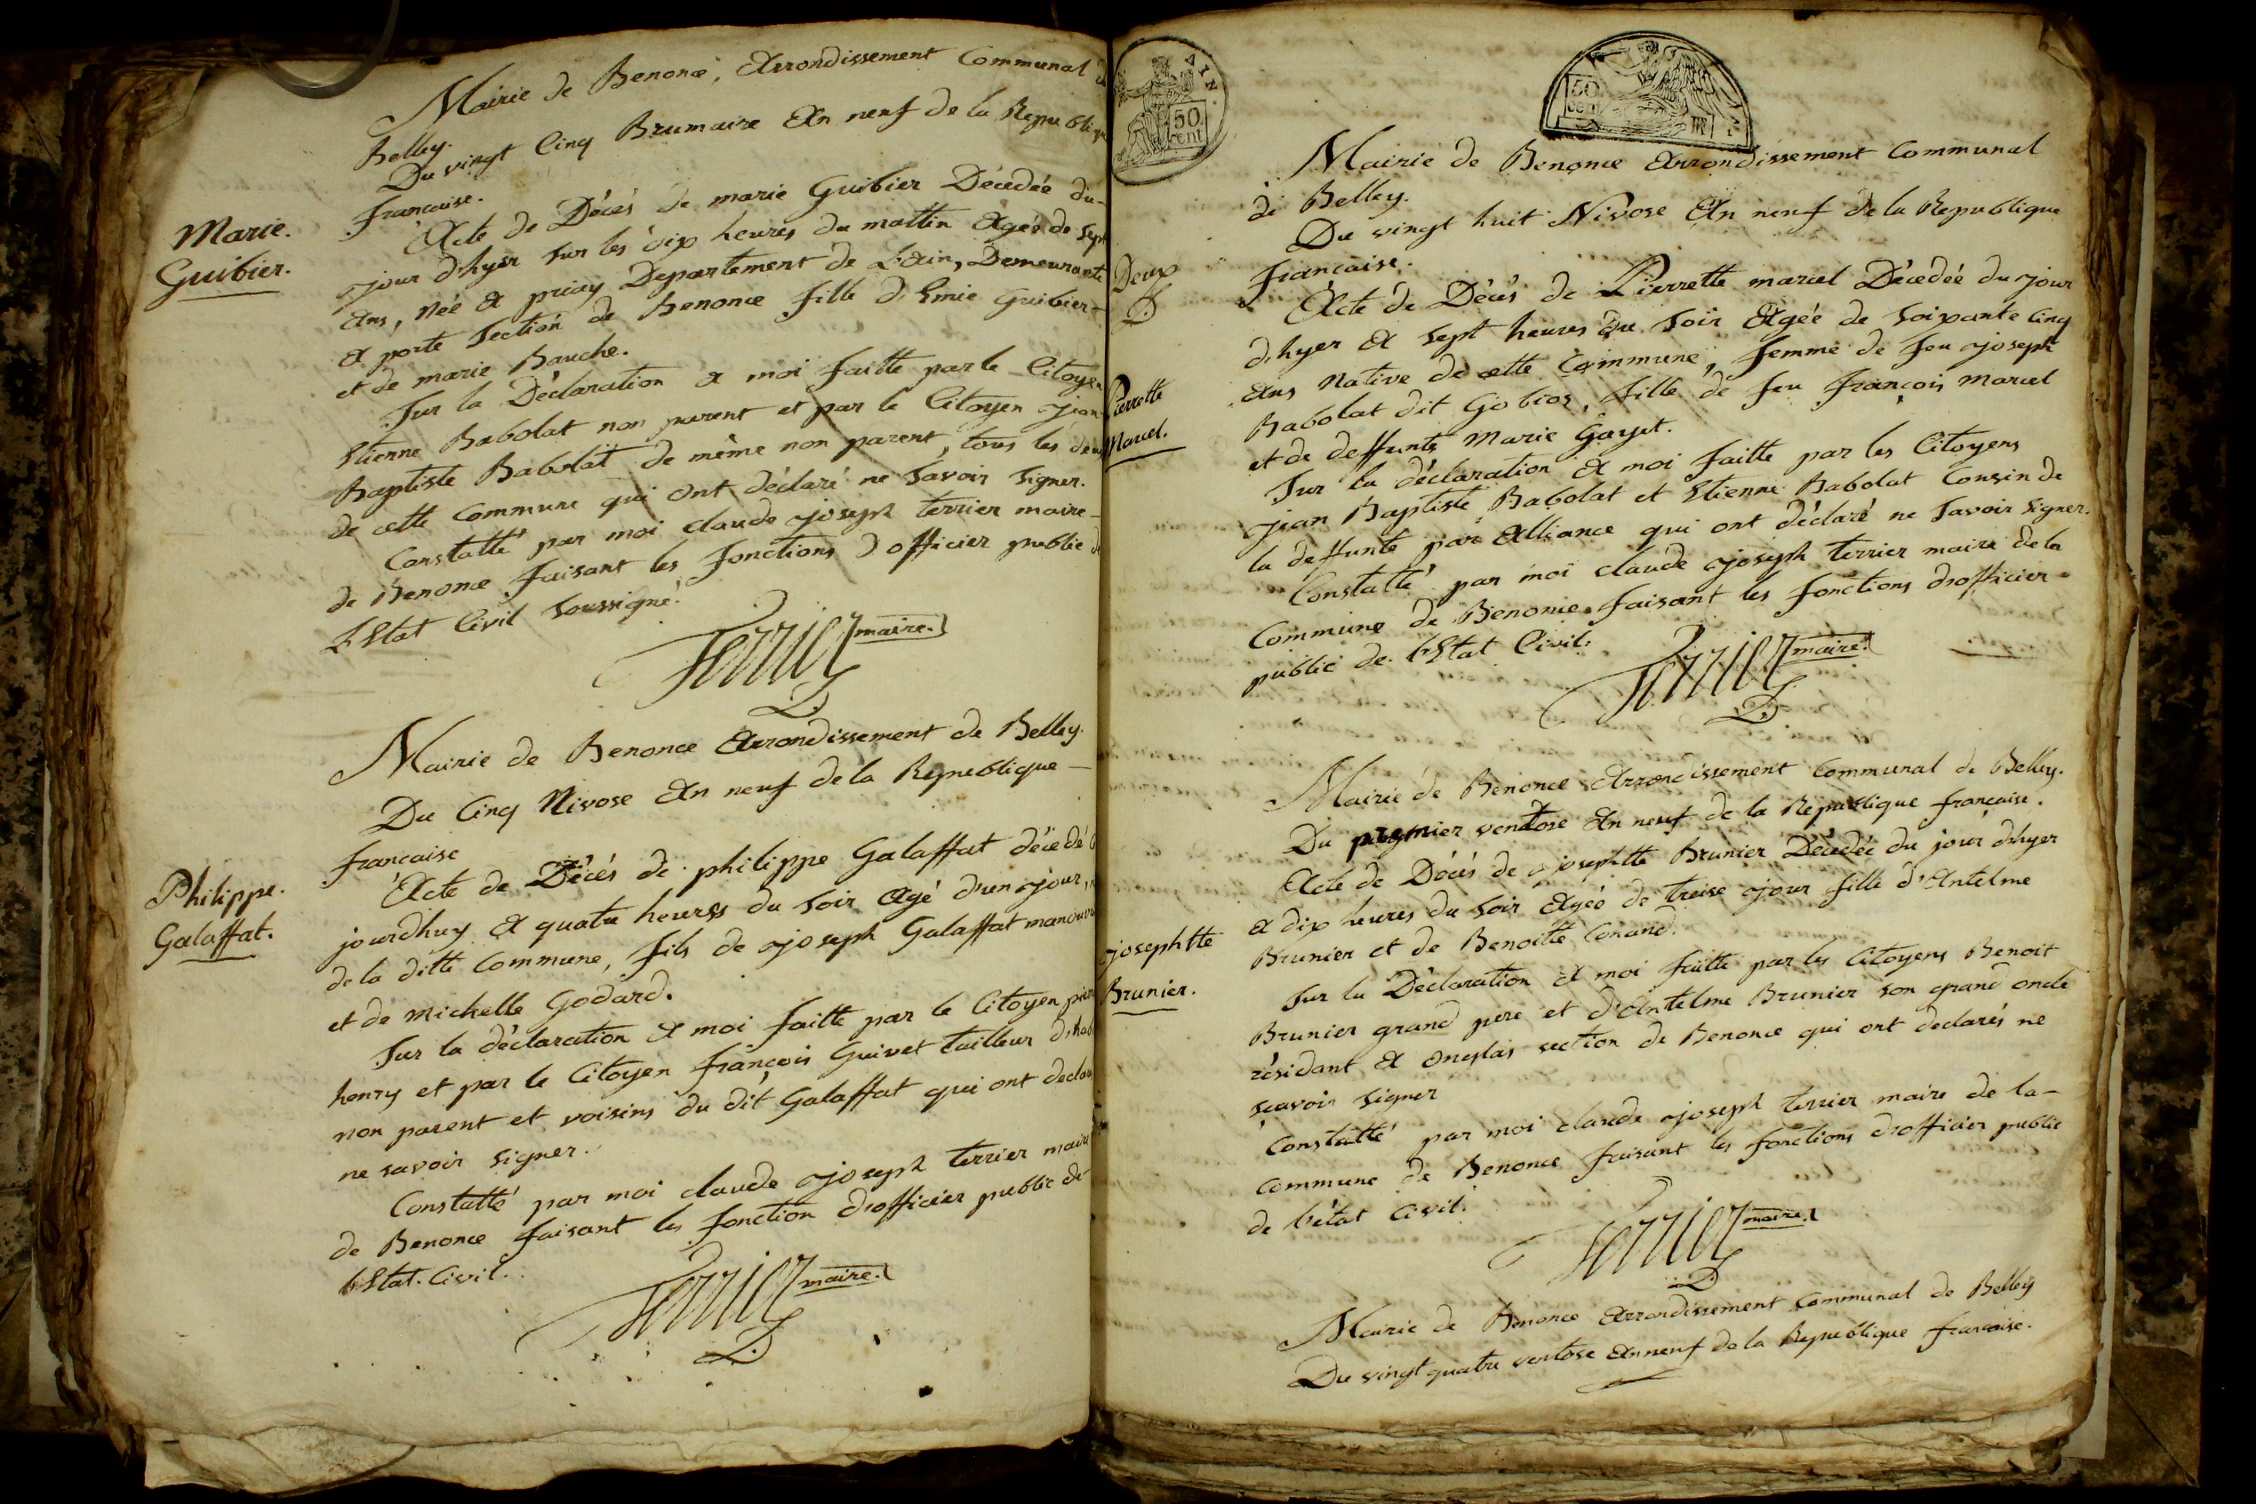 Mairie de Benonce, Arrondissement Communal de
Belley.
Du vingt Cinq Brumaire An neuf de la Republique
francaise.
Marie.
Guibier.
Acte de Décés de marie Guibier Décedée du
jour d'hyer sur les dix heures du mattin Agée de Sept
Ans, née A priay Departement de L'ain, Demeurante
A porte Section de Benonce fille d'Emie Guibier
et de marie Bauche.
Sur la Déclaration A moi faitte par le Citoyen
Etienne Babolat non parent et par le Citoyen jean
Baptiste Babolat de même non parent, tous les deux
de cette Commune qui ont déclaré ne Savoir Signer.
Constatté par moi claude joseph terrier maire
de Benonce faisant les fonctions d'officier public de
L'Etat Civil Soussigné.
Terrier maire.
Mairie de Benonce Arrondissement de Belley.
Du Cinq Nivose An neuf de la Republique
francaise
Philippe.
Galaffat.
Acte de Décés de philippe Galaffat décedé
jourdhuy A quatre heures du Soir Agé d'un jour,
de la ditte Commune, fils de joseph Galaffat
et de Michelle Godard.
Sur la déclaration A moi faitte par le Citoyen
henry et par le Citoyen françois Guivet tailleur
non parent et voisins du dit Galaffat qui ont
ne savoir Signer.
Constatté par moi claude joseph terrier maire
de Benonce faisant les fonction d'officier public de
l'Etat Civil.
Terrier maire.
AIN.
50
cent
50
cent
Mairie de Benonce Arrondissement Communal
de Belley.
Du vingt huit Nivose An neuf de la Republique
francaise.
Deux
Pierrette
Marcel.
Acte de Décés de Pierrette marcel Décedée du jour
d'hyer A Sept heures du Soir Agée de Soixante Cinq
Ans Native de cette Commune, femme de feu joseph
Babolat dit Gobios, fille de feu françois marcel
et de deffunte Marie Gayet.
Sur la déclaration A moi faitte par les Citoyens
jean Baptiste Babolat et Etienne Babolat Cousin de
la deffunte par Alliance qui ont déclaré ne Savoir Signer.
Constatté par moi claude joseph terrier maire de la
Commune de Benonce faisant les fonctions d'officier
public de l'Etat Civil.
Terrier maire.
Mairie de Benonce Arrondissement Communal de Belley.
Du premier ventose An neuf de la Republique francaise.
josephtte
Brunier.
Acte de Décés de josephtte Brunier Décedée du jour d'hyer
A dix heures du Soir Agée de treise jour fille d'Antelme
Brunier et de Benoitte Conand.
Sur la Déclaration A moi faitte par les Citoyens Benoit
Brunier grand pere et d'Antelme Brunier son grand oncle
résidant A Onglas section de Benonce qui ont declarés ne
scavoir Signer
Constatté par moi claude joseph terrier maire de la
Commune de Benonce faisant les fonctions d'officier public
de l'état Civil.
Terrier maire.
Mairie de Benonce Arrondissement Communal de Belley
Du vingt quatre ventose An neuf de la Republique francaise.